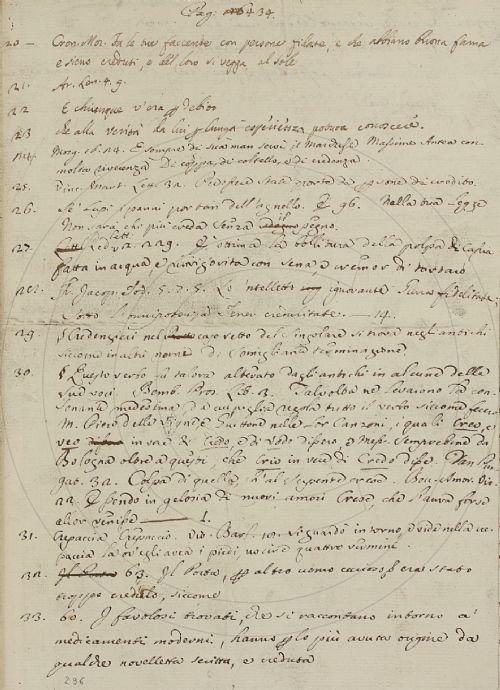 Pag. 434.
20 — Cron. Mor. Fa le tue faccente con persone fidate, e che abbiano buona fama
e sieno creduti, e del loro si vegga al sole
21. Ar. Len. 4. 9.
22 E chiunque v'era debitor
23 che alla verità da lui lunga esperienza poteva conoscere.
24. Morg. 16. 24. E sempre di sua man servì il Marchese Massime Antea con
molta riverenza Di coppa, di coltello, e di credenza.
25. Vinc. Mart. Lett. 32. stata portata da persone di credito.
26. Se' lupi i panni portan dell'agnello. E 96. Nella tua legge
Non sarà chi più creda senza il pegno.
27. Red. lett. 2. 229. È ottima la bollitura della polpa di Cassia
fatta in acqua, e rinvigorita con sena, e cremor di tartaro
28. Fr. Jacop. Tod. 5. 7. 5. Lo 'ntelletto ignorante fidelitate;
Sotto l'onnipotenza Tener credulitate. — 14.
29. § Credenzieri nel caso retto del Singolare si trova negli antichi
siccome in altri nomi di somigliante terminazione
30. § Questo verbo è talora alterato dagli antichi in alcune delle
sue voci. Bemb. Pros. lib. 3. Talvolta ne levarono la con-
sonante medesima, da cui piglia regola tutto il verso siccome fecero
M. Piero delle Vigne, e Guittone nelle lor Canzoni, i quali Creo, e
Veo in vece di Credo, e di Vedo dissero, e Mess. Semprebene da
Bologna oltre a questi, che Crio in vece di Credo disse. Dan. Pur-
gat. 32. Colpa di quella ch'al serpente crese. Bocc. Amor. Vis.
22. Essendo in gelosia di nuovi amori Crese, che s'aura forse
allor venisse — 1.
31. Crepaccia, Crepaccio. Dav. Guardando intorno, vide nella cre-
paccia la ov'egli avea i piedi, uscire quattro vermini.
32. 63. Il Posta, altro uomo era stato
troppo credulo, siccome
33. 60. I favolosi trovati, che si raccontano intorno a'
medicamenti moderni, hanno lo più avuta origine da
qualche novelletta scritta, e creduta
296